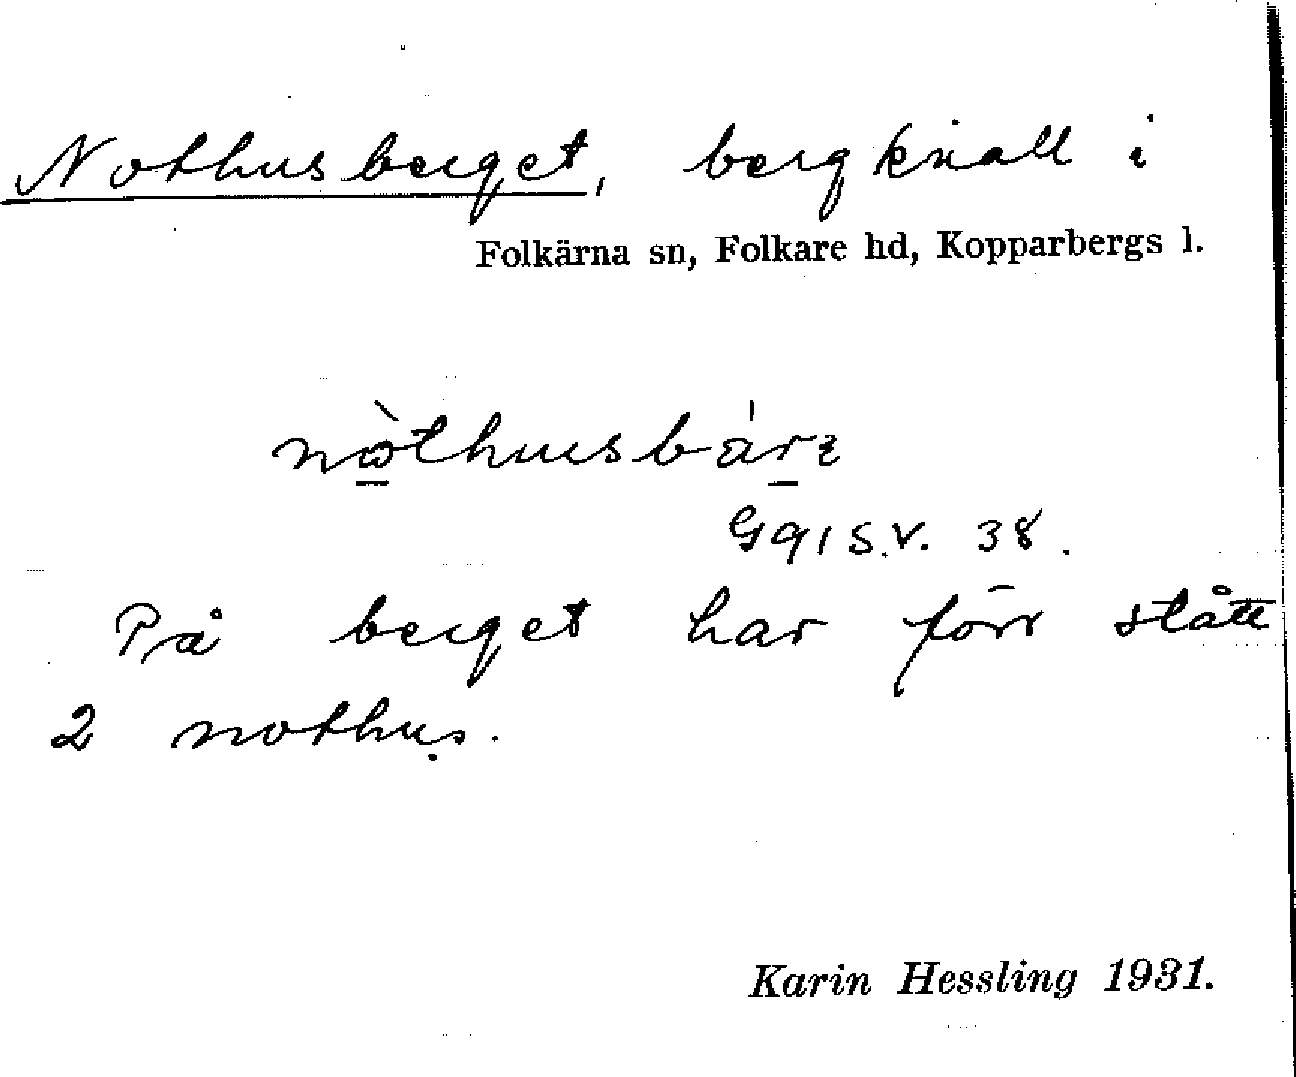 Nothusberget, bergknall i
Folkärna sn, Folkare hd, Kopparbergs l.
nòthusbár
G91 S.V. 38.
På berget har förr stått
2 nothus.
Karin Hessling 1931.